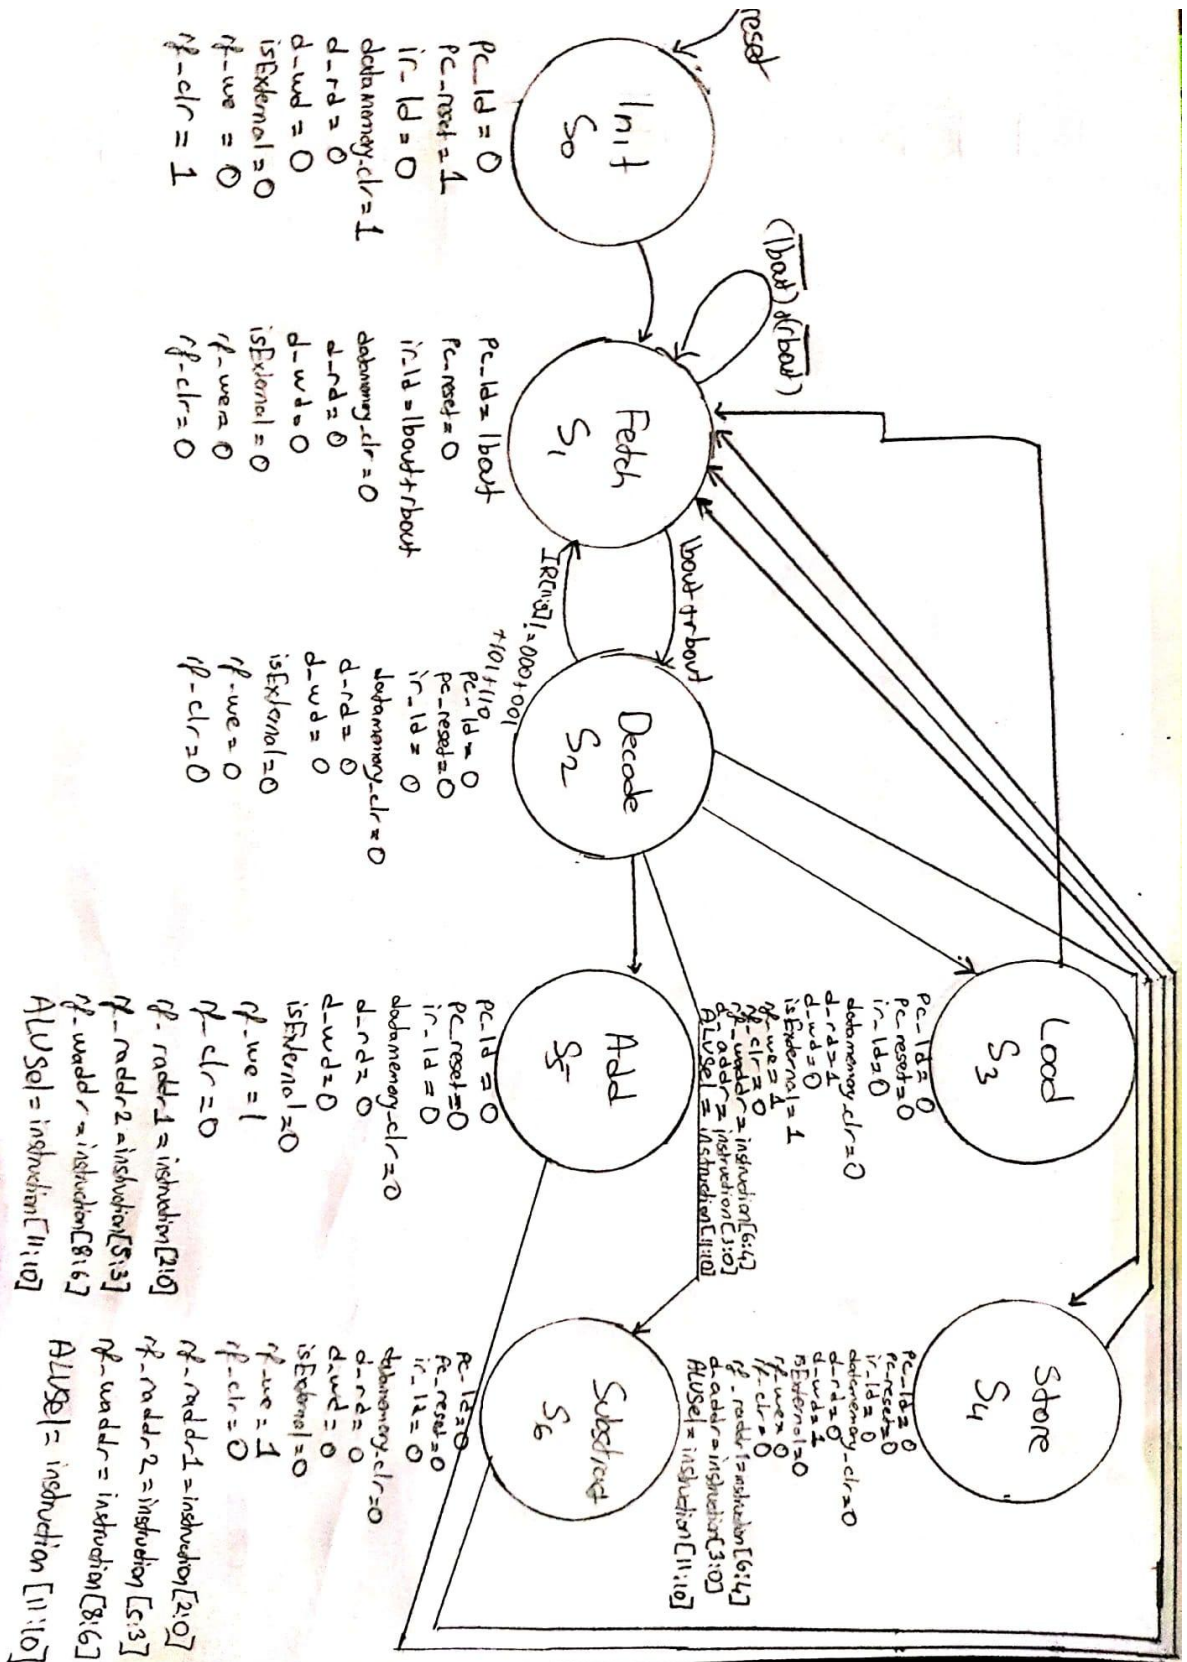 reset
Init
S0
pc_ld = 0
pc_reset = 1
ir_ld = 0
datamemory_clr = 1
d_rd = 0
d_wd = 0
isExternal = 0
rf_we = 0
rf_clr = 1
(lbout)+(rbout)
Fetch
S1
pc_ld = lbout
pc_reset = 0
ir_ld = lbout+rbout
datamemory_clr = 0
d_rd = 0
d_wd = 0
isExternal = 0
rf_we = 0
rf_clr = 0
lbout+rbout
IR[11:9] != 000+001
+101+110
Decode
S2
pc_ld = 0
pc_reset = 0
ir_ld = 0
datamemory_clr = 0
d_rd = 0
d_wd = 0
isExternal = 0
rf_we = 0
rf_clr = 0
Load
S3
pc_ld = 0
pc_reset = 0
ir_ld = 0
datamemory_clr = 0
d_rd = 1
d_wd = 0
isExternal = 1
rf_we = 1
rf_clr = 0
rf_waddr = instruction[6:4]
d_addr = instruction[3:0]
ALUSel = instruction[11:10]
Store
S4
pc_ld = 0
pc_reset = 0
ir_ld = 0
datamemory_clr = 0
d_rd = 0
d_wd = 1
isExternal = 0
rf_we = 0
rf_clr = 0
rf_raddr1 = instruction[6:4]
d_addr = instruction[3:0]
ALUSel = instruction[11:10]
Add
S5
pc_ld = 0
pc_reset = 0
ir_ld = 0
datamemory_clr = 0
d_rd = 0
d_wd = 0
isExternal = 0
rf_we = 1
rf_clr = 0
rf_raddr1 = instruction[2:0]
rf_raddr2 = instruction[5:3]
rf_waddr = instruction[8:6]
ALUSel = instruction[11:10]
Substract
S6
pc_ld = 0
pc_reset = 0
ir_ld = 0
datamemory_clr = 0
d_rd = 0
d_wd = 0
isExternal = 0
rf_we = 1
rf_clr = 0
rf_raddr1 = instruction[2:0]
rf_raddr2 = instruction[5:3]
rf_waddr = instruction[8:6]
ALUSel = instruction[11:10]